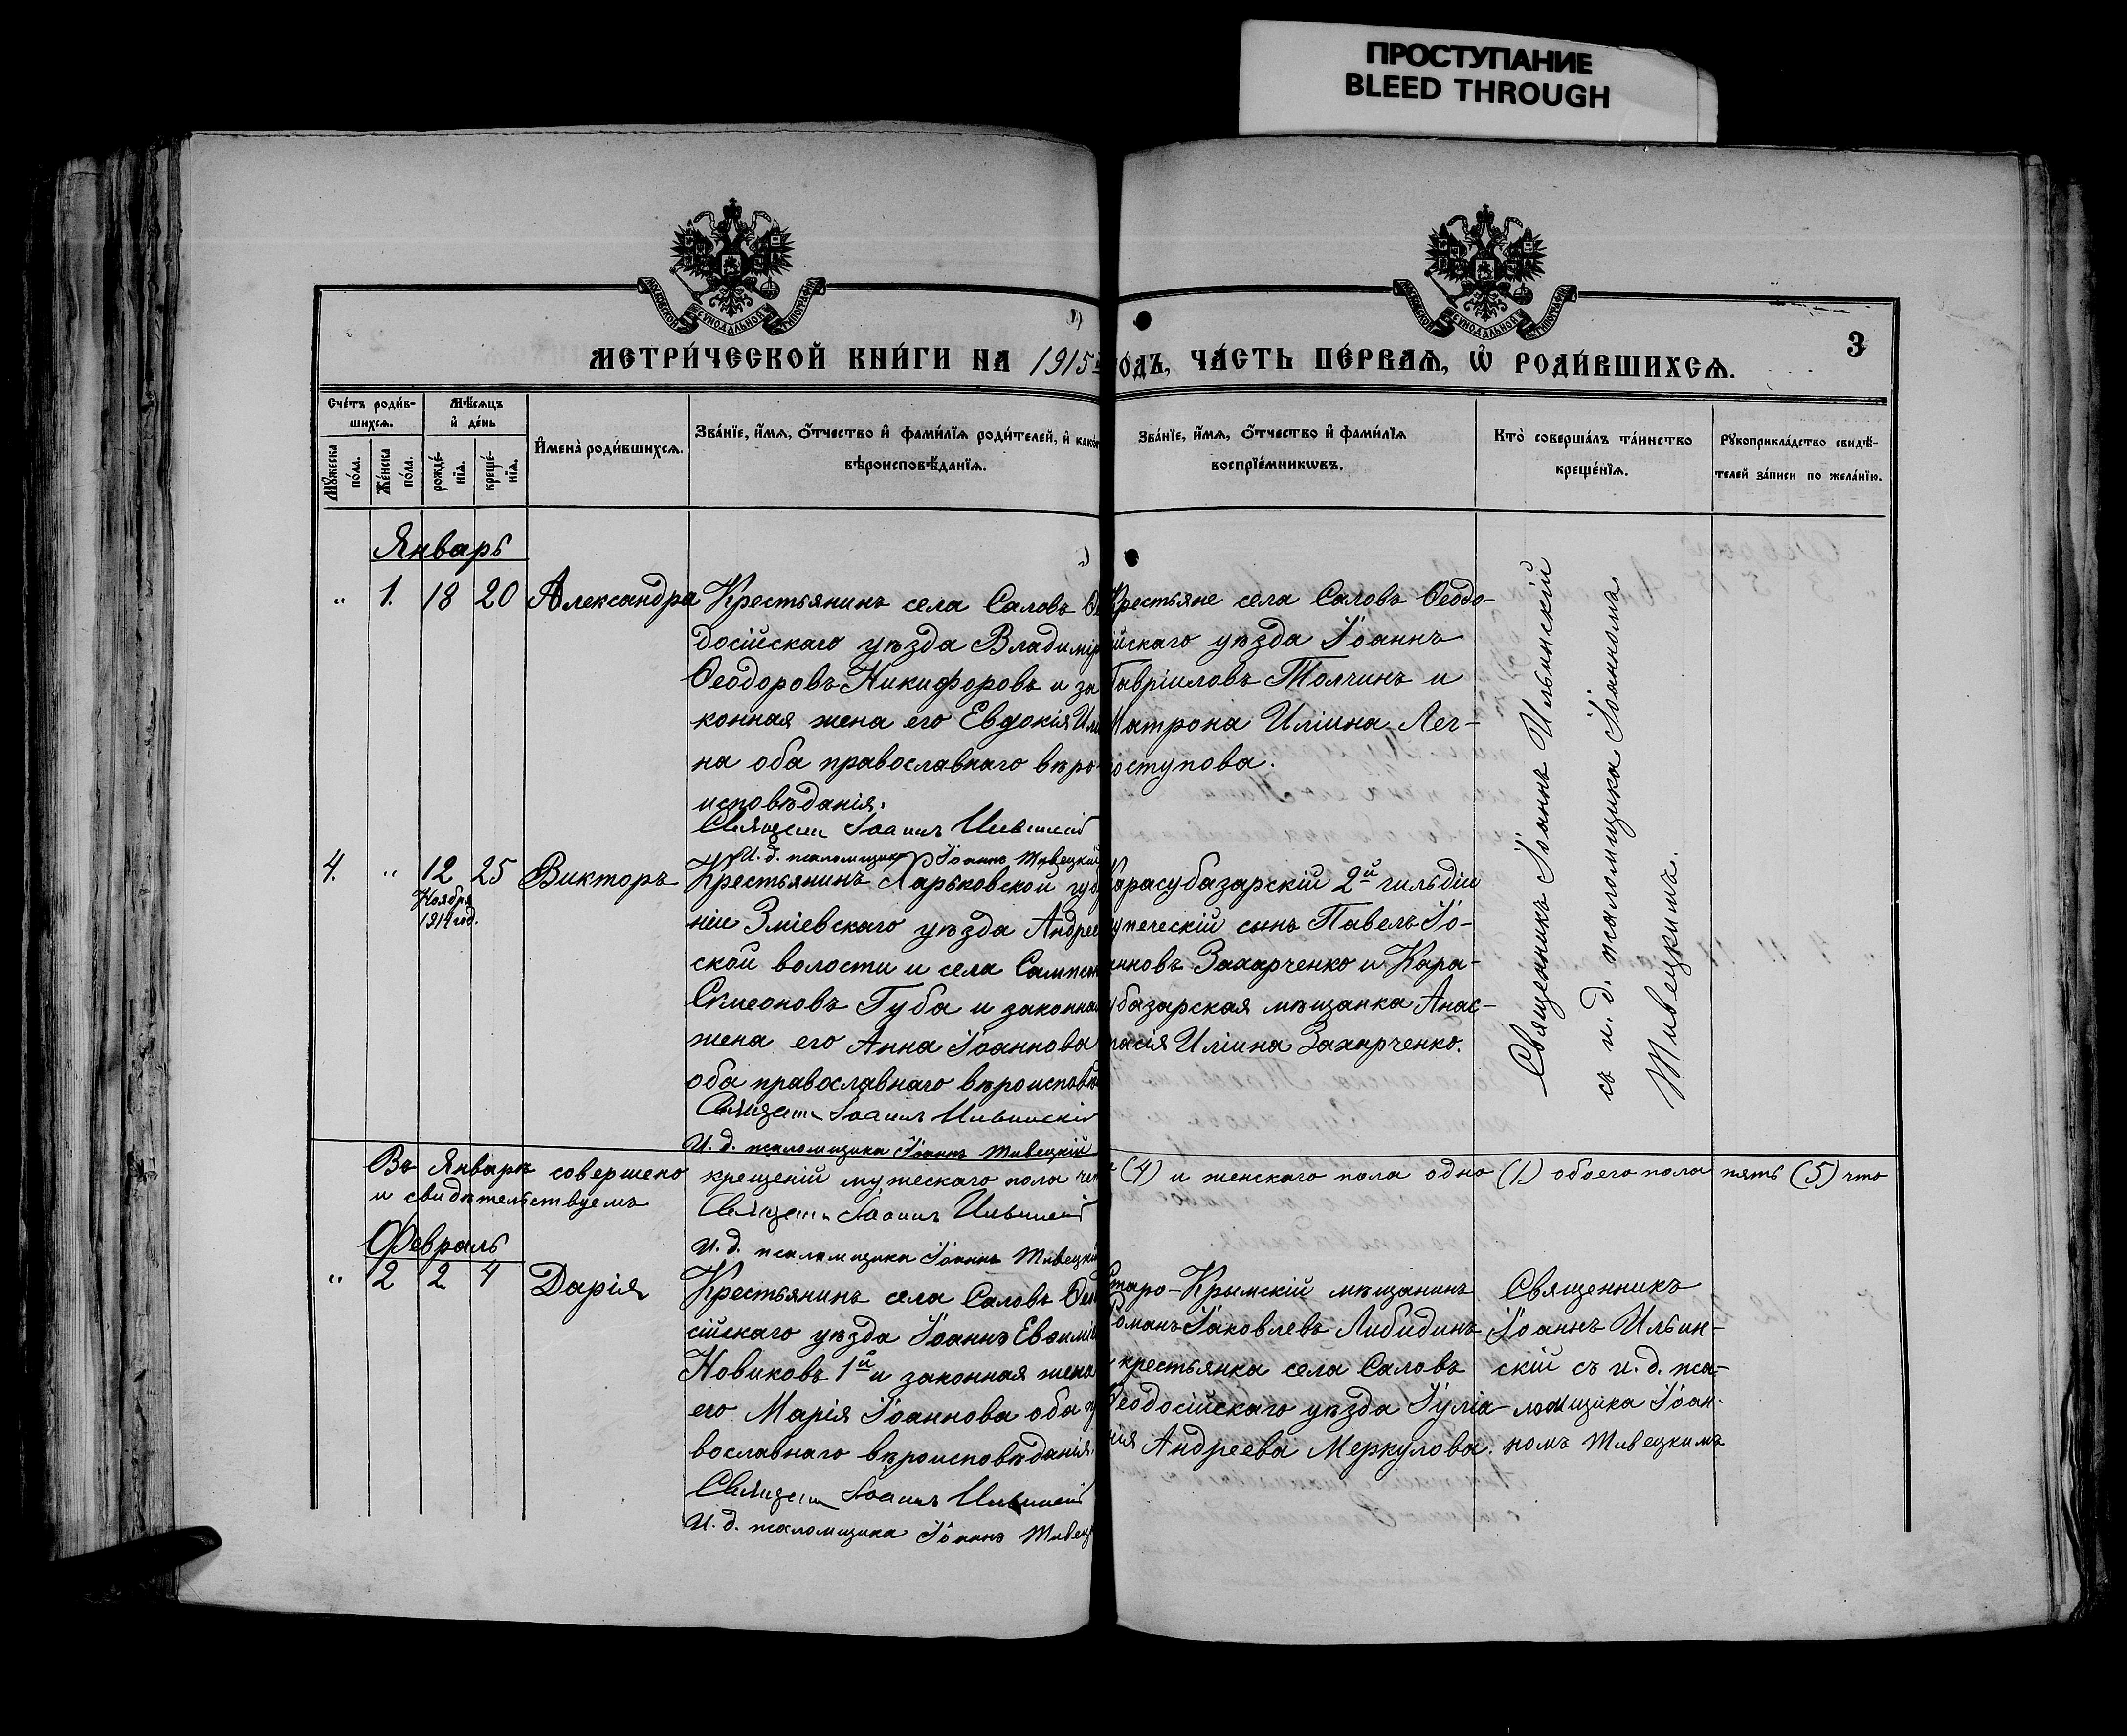 ПРОСТУПАНИЕ
BLEED THROUGH
МОСКОВСКОЙ СѴНОДАЛЬНОЙ ТИПОГРАФІИ
МОСКОВСКОЙ СѴНОДАЛЬНОЙ ТИПОГРАФІИ
3
МЕТРИ́ЧЕСКОЙ КНИ́ГИ НА 1915
ОДЪ, ЧА́СТЬ ПЕ́РВАѦ, Ѡ҆ РОДИ́ВШИХСѦ.
Сче́тъ роди́в-
шихсѧ.
Мѣ́сѧцъ
и҆ де́нь
Мꙋ́жеска
по́ла.
Же́нска
по́ла.
рожде́-
нїѧ.
креще́-
нїѧ.
И҆мена̀ роди́вшихсѧ.
Зва́нїе, и҆́мѧ, ѻ҆́тчество и҆ фами́лїѧ роди́телей, и҆ како́
вѣроисповѣ́данїѧ.
Зва́нїе, и҆́мѧ, ѻ҆́тчество и҆ фами́лїѧ
воспрїе́мникѡвъ.
Кто̀ соверша́лъ та́инство
креще́нїѧ.
Рꙋкоприкла́дство свидѣ́-
телей за́писи по жела́нїю.
Январь
" 1. 18 20 Александра
Крестьянинъ села Саловъ Ѳе
досійскаго уѣзда Владимір
Ѳеодоровъ Никифоровъ и за
конная жена его Евдокія Илі
на оба православнаго вѣро-
исповѣданія.
Священ Іоаннъ Ильинскій
И. д. псаломщика Іоаннъ Живецкій
Крестьяне села Саловъ Ѳеодо-
ійскаго уѣзда Іоаннъ
Гавріиловъ Толчинъ и
Матрона Иліина Лег-
оступова.
Священникъ Іоаннъ Ильинскій
съ и. д. псаломщика Іоанномъ
Живецкимъ.
4. " 12 25 Викторъ
Ноября
1914 год.
Крестьянинъ Харьковской губ
ніи Зміевскаго уѣзда Андрее
ской волости и села Сампсон
Симеоновъ Губа и законная
жена его Анна Іоаннова
оба православнаго вѣроисповѣ
Священ Іоаннъ Ильинскій
И. д. псаломщика Іоаннъ Живецкій
Карасубазарскій 2й гильдіи
упеческій сынъ Павелъ Іо-
нновъ Захарченко и Кара-
убазарская мѣщанка Анас-
тасія Иліина Захарченко.
Въ Январѣ совершено крещеній мужескаго пола чет (4) и женскаго пола одно (1) обоего пола пять (5) что
и свидѣтельствуемъ
Священ Іоаннъ Ильинскій
И. д. псаломщика Іоаннъ Живецкій
Февраль
" 2 2 4 Дарія
Крестьянинъ села Саловъ Ѳеодо
сійскаго уѣзда Іоаннъ Евѳимі
Новиковъ 1й и законная жена
его Марія Іоаннова оба п
вославнаго вѣроисповѣданія.
Священ Іоаннъ Ильинскій
И. д. псаломщика Іоаннъ Живец
Старо-Крымскій мѣщанинъ
Романъ Іаковлевъ Либидинъ
крестьянка села Саловъ
Ѳеодосійскаго уѣзда Іулiа-
нія Андреева Меркулова.
Священникъ
Іоаннъ Ильин-
скій съ и. д. пса-
ломщика Іоан-
номъ Живецкимъ